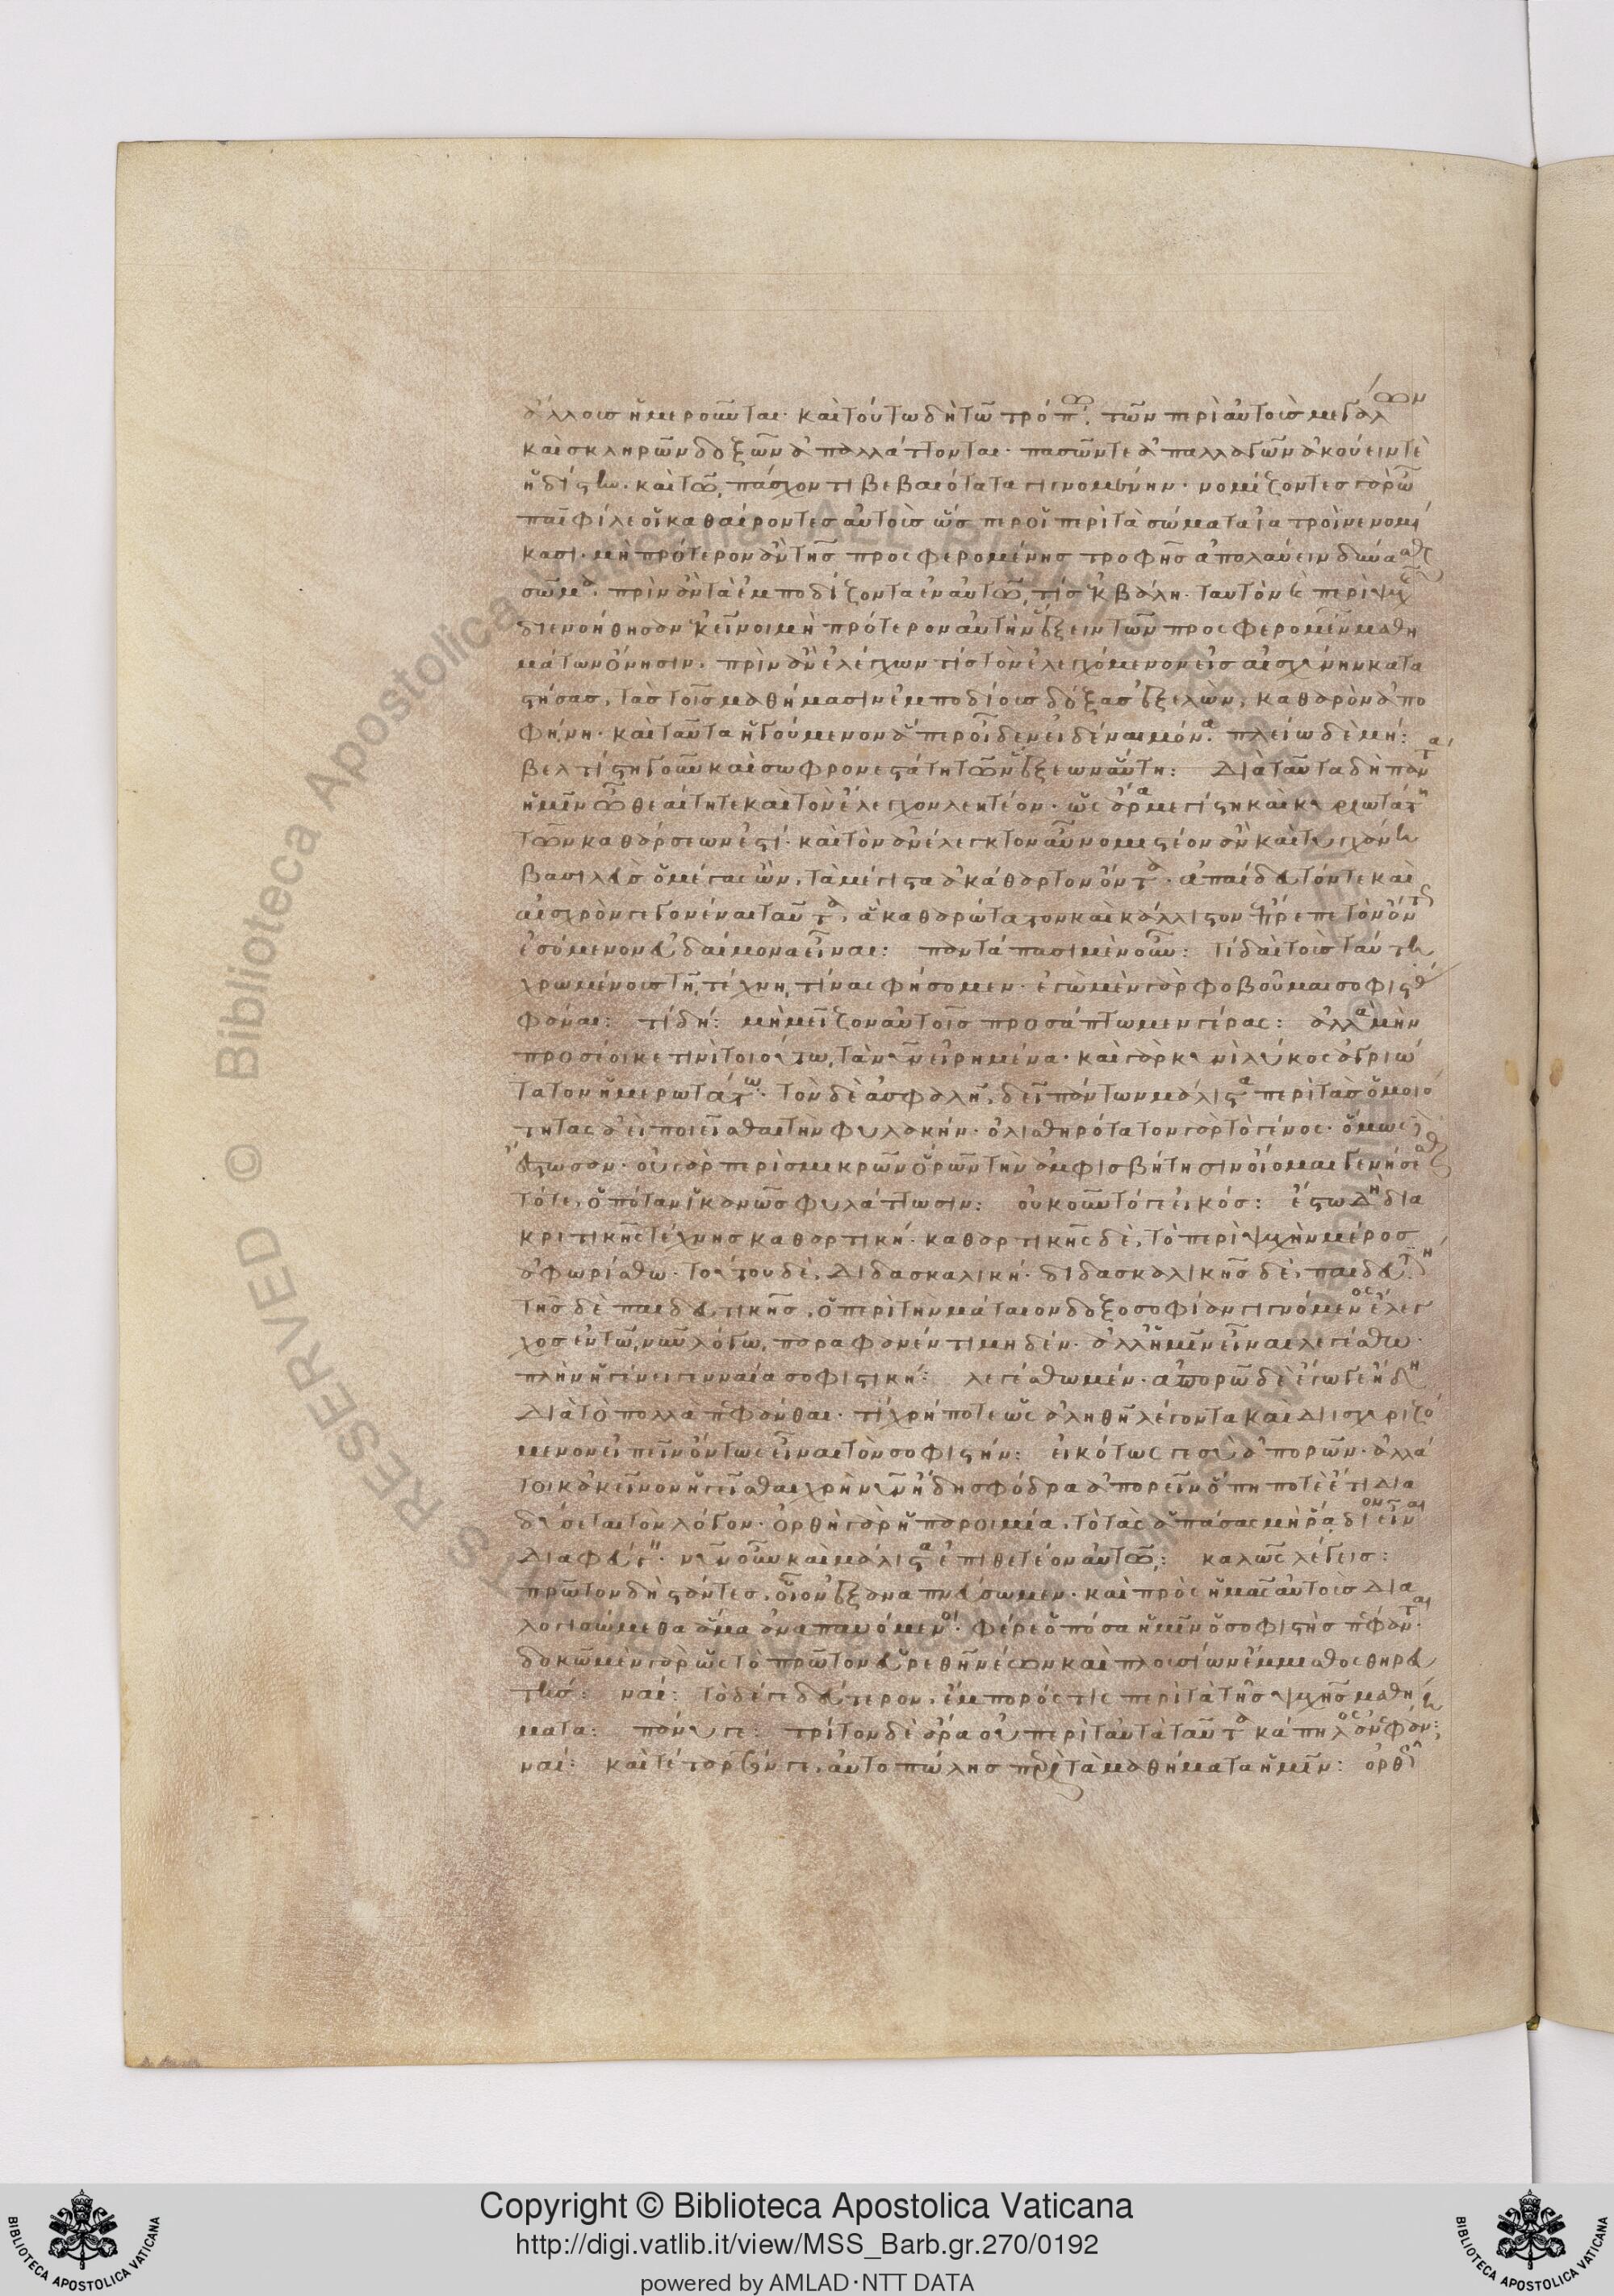 ἄλλους ἡμεροῦνται· καὶ τούτω δὴ τῶ τρόπω, τῶν περὶ αὐτοὺς μεγάλων
καὶ σκληρῶν δοξῶν ἀπαλλάττονται· πασῶν τε ἀπαλλαγῶν ἀκούειν τε
ἡδίστην· καὶ τῶ πάσχοντι βεβαιότατα γιγνομένην· νομίζοντες γὰρ ὦ
παῖ φίλε οἱ καθαίροντες αὐτοὺς ὥσπερ οἱ περὶ τὰ σώματα ἰατροὶ νενομί
κασι· μὴ πρότερον ἂν τῆς προσφερομένης τροφῆς ἀπολαύειν δύνασθαι
σῶμα, πρὶν ἂν τὰ ἐμποδίζοντα ἐν αὐτῶ τὶς ἐκβάλη· ταυτὸν καὶ περὶ ψυχῆς
διενοήθησαν ἐκεῖνοι μὴ πρότερον αὐτὴν ἕξειν τῶν προσφερομένων μαθη
μάτων ὄνησιν, πρὶν ἂν ἐλέγχων τὶς τὸν ἐλεγχόμενον εἰς αἰσχύνην κατα
στήσας, τὰς τοῖς μαθήμασιν ἐμποδίους δόξας ἐξελὼν, καθαρὸν ἀπο
φήνη· καὶ ταῦτα ἡγούμενον ἅπερ οἶδεν εἰδέναι μόνα, πλείω δὲ μή:
βελτίστη γοῦν καὶ σωφρονεστάτη τῶν ἕξεων αὕτη: Διὰ ταῦτα δὴ πάντα
ἡμῖν ὦ θεαίτητε καὶ τὸν ἔλεγχον λεκτέον· ὡς ἄρα μεγίστη καὶ κυριωτάτη
τῶν καθάρσεων ἐστί· καὶ τὸν ἀνέλεγκτον αὖ νομιστέον ἂν καὶ τυγχάνη
βασιλεὺς ὁ μέγας ὢν, τὰ μέγιστα ἀκάθαρτον ὄντα· ἀπαίδευτόν τε καὶ
αἰσχρὸν γεγονέναι ταῦτα, ἃ καθαρώτατον καὶ κάλλιστον ἔπρεπε τὸν ὄντως
ἐσόμενον εὐδαίμονα εἶναι: παντάπασι μὲν οὖν: τί δαὶ τοὺς ταύτη
χρωμένους τῆ τέχνη τίνας φήσομεν· ἐγὼ μὲν γὰρ φοβοῦμαι σοφιστὰς
φάναι: τί δή: μὴ μεῖζον αὐτοῖς προσάπτωμεν γέρας: ἀλλὰ μὴν
προσέοικέ τινι τοιούτω τὰ νῦν εἰρημένα· καὶ γὰρ κυνὶ λύκος ἀγριώ
τατον ἡμερωτάτω· τὸν δὲ ἀσφαλῆ, δεῖ πάντων μάλιστα περὶ τὰς ὁμοιό
τητας ἀεὶ ποιεῖσθαι τὴν φυλακήν· ὀλισθηρότατον γὰρ τὸ γένος· ὅμως δὲ
ἔστωσαν· οὐ γὰρ περὶ σμικρῶν ὅρων τὴν ἀμφισβήτησιν οἴομαι γενήσεσθαι
τότε, ὁπόταν ἱκανῶς φυλάττωσιν: οὐκοῦν τό γε εἰκός: ἔστω δὴ δια
κριτικῆς τέχνης καθαρτική· καθαρτικῆς δὲ, τὸ περὶ ψυχὴν μέρος
ἀφωρίσθω· τούτου δὲ, διδασκαλική· διδασκαλικῆς δὲ, παιδευτική·
τῆς δὲ παιδευτικῆς, ὁ περὶ τὴν μάταιον δοξοσοφίαν γιγνόμενος ἔλεγ
χος ἐν τῶ νῦν λόγω παραφανέντι μηδὲν· ἀλλ' ἡμῖν εἶναι λεγέσθω·
πλὴν ἡ γένει γενναία σοφιστική: λεγέσθω μέν· ἀπορῶ δὲ ἔγωγε ἤδη
διὰ τὸ πολλὰ πεφάνθαι· τί χρή ποτε ὡς ἀληθῆ λέγοντα καὶ διισχυριζό
μενον εἰπεῖν ὄντως εἶναι τὸν σοφιστήν: εἰκότως γε σὺ ἀπορῶν· ἀλλά
τοι κἀκεῖνον ἡγεῖσθαι χρὴ νῦν ἤδη σφόδρα ἀπορεῖν ὅπη ποτὲ ἔτι δια
δύσεται τὸν λόγον· ὀρθὴ γὰρ ἡ παροιμία, τὸ τὰς ἁπάσας μὴ ῥάδιον εἶναι
διαφεύγειν· νῦν οὖν καὶ μάλιστα ἐπιθετέον αὐτῶ: καλῶς λέγεις:
πρῶτον δὴ στάντες, οἷον ἐξαναπνεύσωμεν· καὶ πρὸς ἡμᾶς αὐτοὺς δια
λογισώμεθα ἅμα ἀναπαυόμενοι· φέρε ὁπόσα ἡμῖν ὁ σοφιστὴς πέφανται·
δοκῶ μὲν γὰρ ὡς τὸ πρῶτον εὑρέθη νέων καὶ πλουσίων ἔμμισθος θηρευ
τής: ναί: τὸ δέ γε δεύτερον, ἔμπορός τις περὶ τὰ τῆς ψυχῆς μαθή
ματα: πάνυ γε: τρίτον δὲ ἆρα οὐ περὶ ταὐτὰ ταῦτα κάπηλος ἀνεφάνη:
ναί: καὶ τέταρτόν γε, αὐτοπώλης περὶ τὰ μαθήματα ἡμῖν: ὀρθῶς
Copyright © Biblioteca Apostolica Vaticana
http://digi.vatlib.it/view/MSS_Barb.gr.270/0192
powered by AMLAD·NTT DATA